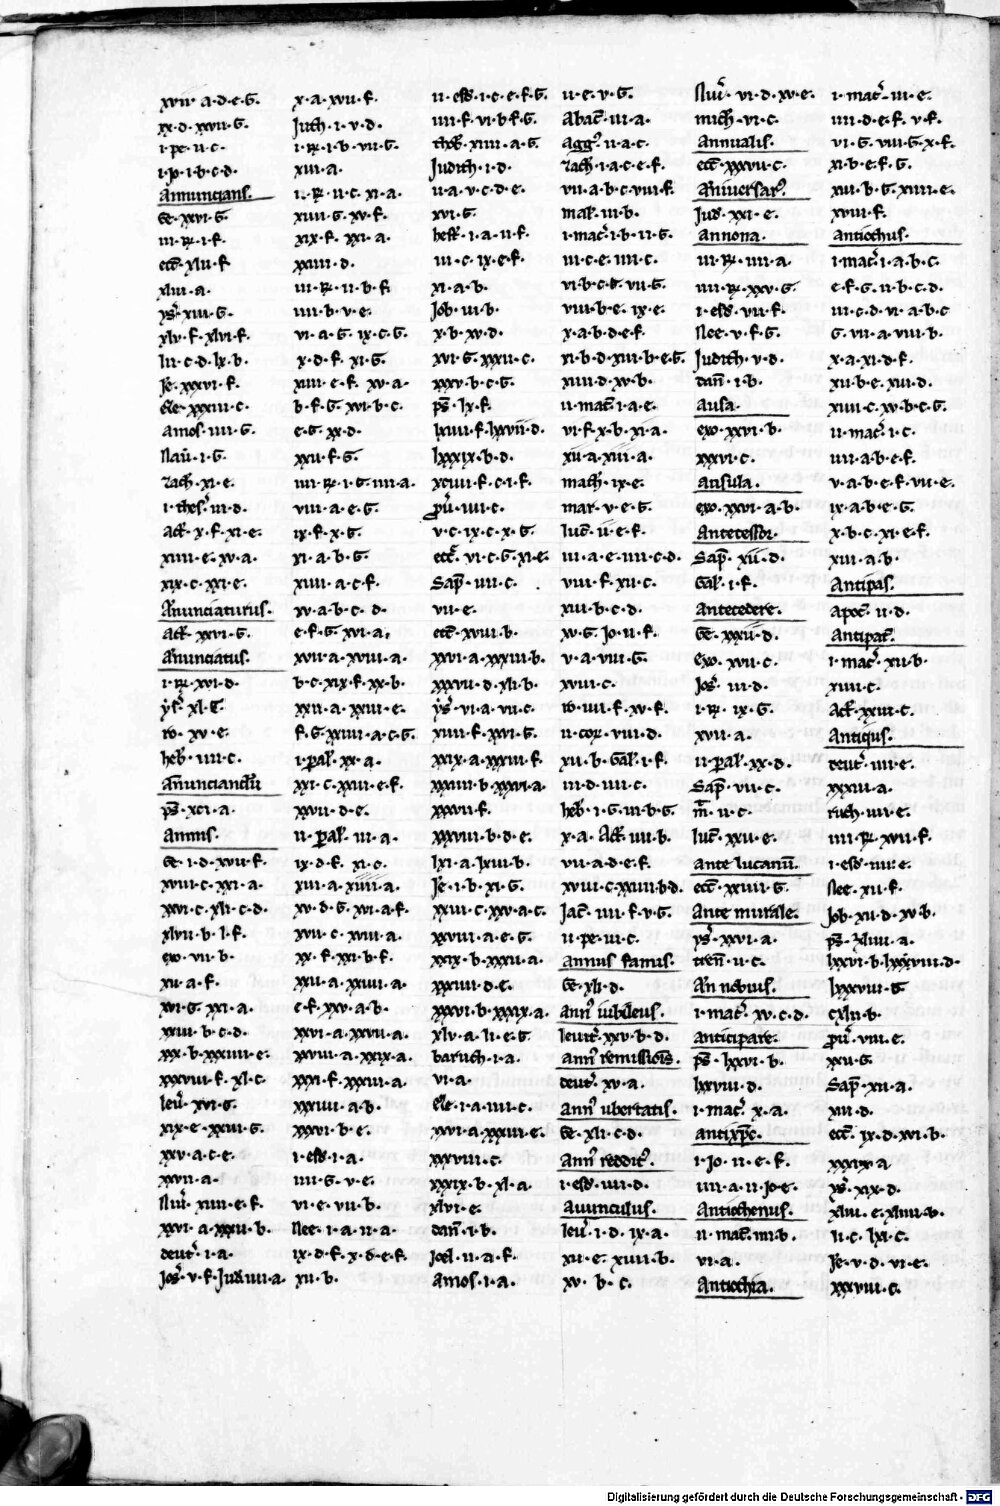 xvii· a·d·e·G·
xx·d·xxvii·G·
i·pe·ii·c·
i·io·i·b·c·d·
Annuncians·
Ge·xxvi·G·
iii·R·i·f·
ecc̄·xlii·f
xliii·a·
ys·xiii·G·
xlv·f·xlvi·f·
lii·c·d·lx·b·
Ie·xxxvi·f·
Eze·xxxiii·c·
amos·iiii·G·
Naū·i·G·
zach·xi·e·
i·thes·iii·d·
act·x·f·xi·e·
xiiii·e·xv·a·
xix·c·xxi·e·
Anunciaturus·
act·xxvi·G·
Anunciatus·
i·R·xvi·d·
ys·xl·G
ro·xv·e·
heb·iiii·c·
Annunciandū
ps·xci·a·
Annus·
Ge·i·d·xvii·f·
xviii·c·xxi·a·
xxvi·c·xli·c·d·
xlvii·b·l·f·
exo·vii·b·
xii·a·f·
xvi·G·xxi·a·
xxiii·b·c·d·
xxx·b·xxxiiii·e·
xxxviii·f·xl·c·
leu·xvi·G·
xix·e·xxiii·G·
xxv·a·c·e·
xxvii·a·
Nu·xiiii·e·f·
xxvi·a·xxxii·b·
deut·i·a·
Ios·v·f·Jud·iii·a·
x·a·xvii·f·
Juth·i·v·d·
i·R·i·b·vii·G·
xiii·a·
ii·R·ii·c·xi·a·
xiiii·G·xv·f·
xix·f·xxi·a·
xxiiii·d·
iii·R·ii·b·f·
iiii·b·v·e·
vi·a·G·ix·c·G·
x·d·f·xi·G·
xiiii·e·f·xv·a·
b·f·G·xvi·b·c·
e·G·xx·d·
xxii·f·G·
iiii·R·i·G·iiii·a·
viii·a·e·G·
ix·f·x·G·
xi·a·b·G·
xiiii·a·c·f·
xv·a·b·c·d·
e·f·G·xvi·a·
xvii·a·xviii·a·
b·c·xix·f·xx·b·
xxii·a·xxiii·e·
f·G·xxiiii·a·c·G·
i·pal·xx·a·
xxi·c·xxiii·e·f·
xxvii·d·e·
ii·pal·iii·a·
ix·d·f·xi·c·
xiii·a·xiiii·a·
xv·d·G·xvi·a·f·
xvii·c·xviii·a·
xx·f·xxi·b·f·
xxii·a·xxiiii·a·
e·f·xxv·a·b·
xxvi·a·xxvii·a·
xxviii·a·xxix·a·
xxxi·f·xxxiii·a·
xxxiiii·a·b·
xxxvi·b·e·
i·esd·i·a·
iiii·G·v·e·
vi·e·vii·b·
Nee·i·a·ii·a·
ix·d·f·x·d·e·f·
xii·b·
ii·esd·i·c·e·f·G·
iiii·f·vi·b·f·G·
thob·xiiii·a·G·
Judith·i·d·
ii·a·v·c·d·e·
xvi·G·
hest·i·a·ii·f·
iii·c·ix·e·f·
xi·a·b·
Job·iii·b·
x·b·xv·d·
xvi·G·xxxii·c·
xxxv·b·c·G·
ps·lx·f·
lxiiii·f·lxxvii·d·
lxxxix·b·d·
xciiii·f·c·i·f·
pu·iii·c·
v·c·ix·c·x·G·
ecc·vi·c·G·xi·e·
Sap·iiii·c·
vii·e·
ecc̄·xviii·b·
xxvi·a·xxxiii·b·
xxxvii·d·xli·b·
ys·vi·a·vii·c·
xiiii·f·xxvi·G·
xxix·a·xxxiii·f·
xxxiiii·b·xxxvi·a·
xxxvii·f·
xxxviii·b·d·e·
lxi·a·lxiii·b·
Ie·i·b·xi·G·
xxiii·c·xxv·a·c·
xxviii·a·e·G·
xxix·b·xxxii·a·
xxxiii·d·e·
xxxvi·b·xxxix·a·
xlv·a·li·e·G·
baruch·i·a·
vi·a·
eze·i·a·iiii·c·
xxvi·a·xxxiii·e·
xxxviii·c·
xxxix·b·xl·a·
xlvi·e·
dan̄·i·b·
Joel·ii·a·f·
amos·i·a·
ii·e·v·G·
Abac̄·iii·a·
agg·ii·a·c·
zach·i·a·c·e·f·
vii·a·b·c·viii·f·
mal·iii·b·
i·mac·i·b·ii·G·
iii·c·e·iiii·c·
vi·b·c·d·vii·G·
viii·b·e·ix·e·
x·a·b·d·e·f·
xi·b·d·xiii·b·e·G·
xiiii·d·xv·b·
ii·mac̄·i·a·e·
vi·f·x·b·xi·a·
xii·a·xiii·a·
math·ix·e·
mar·v·e·G·
luc·ii·e·f·
iii·a·e·iiii·c·d·
viii·f·xii·c·
xiii·b·c·d·
xv·G·Jo·ii·f·
v·a·viii·G·
xviii·c·
ro·iiii·f·xv·f·
ii·cor·viii·d·
xii·b·Gal·i·f·
iii·d·iiii·c·
heb·i·G·iii·b·G·
x·a·Act·iiii·b·
vii·a·d·e·f·
xviii·c·xxiiii·b·d·
Jac·iiii·f·v·G·
ii·pe·iii·c·
Annus famis·
Ge·xli·d·
Ann⁹ iubileus·
leuit·xxv·b·d·
Ann⁹ remissiois·
deut·xv·a·
Ann⁹ ubertatis·
Ge·xli·c·d·
Ann⁹ reddit⁹·
i·esd·iiii·d·
Auunculus·
leu·i·d·ix·a·
xii·e·xviii·b·
xv·b·c·
Nu·vi·d·xv·e·
mich·vi·c·
Annualis·
ecc̄·xxxvii·c·
Aniuersar⁹·
Jud·xxi·e·
Annona·
iii·R·iiii·a·
iiii·R·xxv·G·
i·esd·vii·f·
Nee·v·f·G·
Judith·v·d·
dan̄·i·b·
Ansa·
exo·xxvi·b·
xxxvi·c·
Ansula·
exo·xxvi·a·b·
Antecessor·
Sap·xii·d·
Gal·i·f·
Antecedere·
Ge·xxxii·d·
Exo·xvii·c·
Jos·iii·d·
i·R·ix·G·
xvii·a·
ii·pal·xx·d·
Sap·vii·c·
m̄·ii·c·
luc·xxii·e·
Ante lucanū·
ecc̄·xxiiii·G·
Ante murale·
ys·xxvi·a·
tren̄·ii·c·
An nobius·
i·mac·xv·c·d·
anticipare·
ps·lxxvi·b·
lxxviii·d·
i·mac·x·a·
antixp̄c·
i·Jo·ii·e·f·
iiii·a·ii·Jo·e·
Antiochenus·
ii·mac·iiii·b·
vi·a·
Antiochia·
i·mac·iii·e·
iiii·d·e·f·v·f·
vi·G·viii·G·x·f·
xi·b·e·f·G·
xii·b·G·xiiii·e·
xviii·f·
antiochus·
i·mac·i·a·b·c·
e·f·G·ii·b·c·d·
iii·c·d·vi·a·b·c
G·vii·a·viii·b·
x·a·xi·d·f·
xii·b·e·xiii·d·
xiiii·c·xv·b·c·G·
ii·mac·i·c·
iiii·a·b·e·f·
v·a·b·e·f·vii·e·
ix·a·b·e·G·
x·b·c·xi·e·f·
xiii·a·b·
Antipas·
apoc·ii·d·
Antipat·
i·mac·xii·b·
xiiii·c·
Act·xxiii·c·
Antiqus·
deut·iiii·e·
xxxiii·a·
ruth·iiii·e·
iiii·R·xvii·f·
i·esd·iiii·e·
Nee·xii·f·
Job·xii·d·xv·b·
ps·xliiii·a·
lxxvi·b·lxxxviii·d·
lxxxviii·G
cxlii·b·
pu·viii·e·
xxii·G·
Sap·xii·a·
xiii·d·
ecc̄·ix·d·xvi·b·
xxxix·a
ys·xix·d·
xliii·e·xliiii·b·
li·c·lxi·c·
Ie·v·d·vi·e·
xxxviii·c·
Digitalisierung gefördert durch die Deutsche Forschungsgemeinschaft - DFG